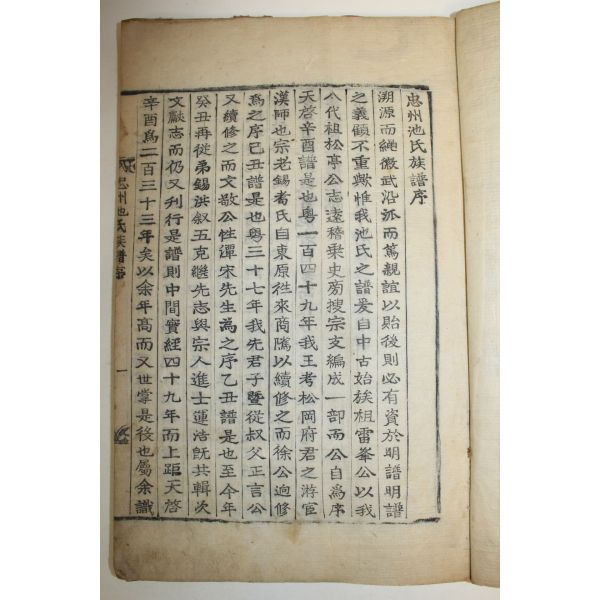 忠州池氏族譜序
溯源而繩徽武沿派而篤親誼以貽後則必有資於明譜明譜
之義顧不重歟惟我池氏之譜爰自中古始族祖雷峯公以我
八代祖松亭公志遠稽乘史旁搜宗支編成一部而公自爲序
天啓辛酉譜是也粤一百四十九年我王考松岡府君之游宦
漢師也宗老錫耈氏自東原徃來商騭以續修之而徐公逈修
爲之序己丑譜是也粤三十七年我先君子曁從叔父正言公
又續修之而文敬公性潭宋先生爲之序乙丑譜是也至今年
癸丑再從弟錫洪叙五克繼先志與宗人進士蓮浩旣共輯次
文獻志而仍又刋行是譜則中間實經四十九年而上距天啓
辛酉爲二百三十三年矣以余年高而又世掌是後也屬余識
忠州池氏族譜序
一